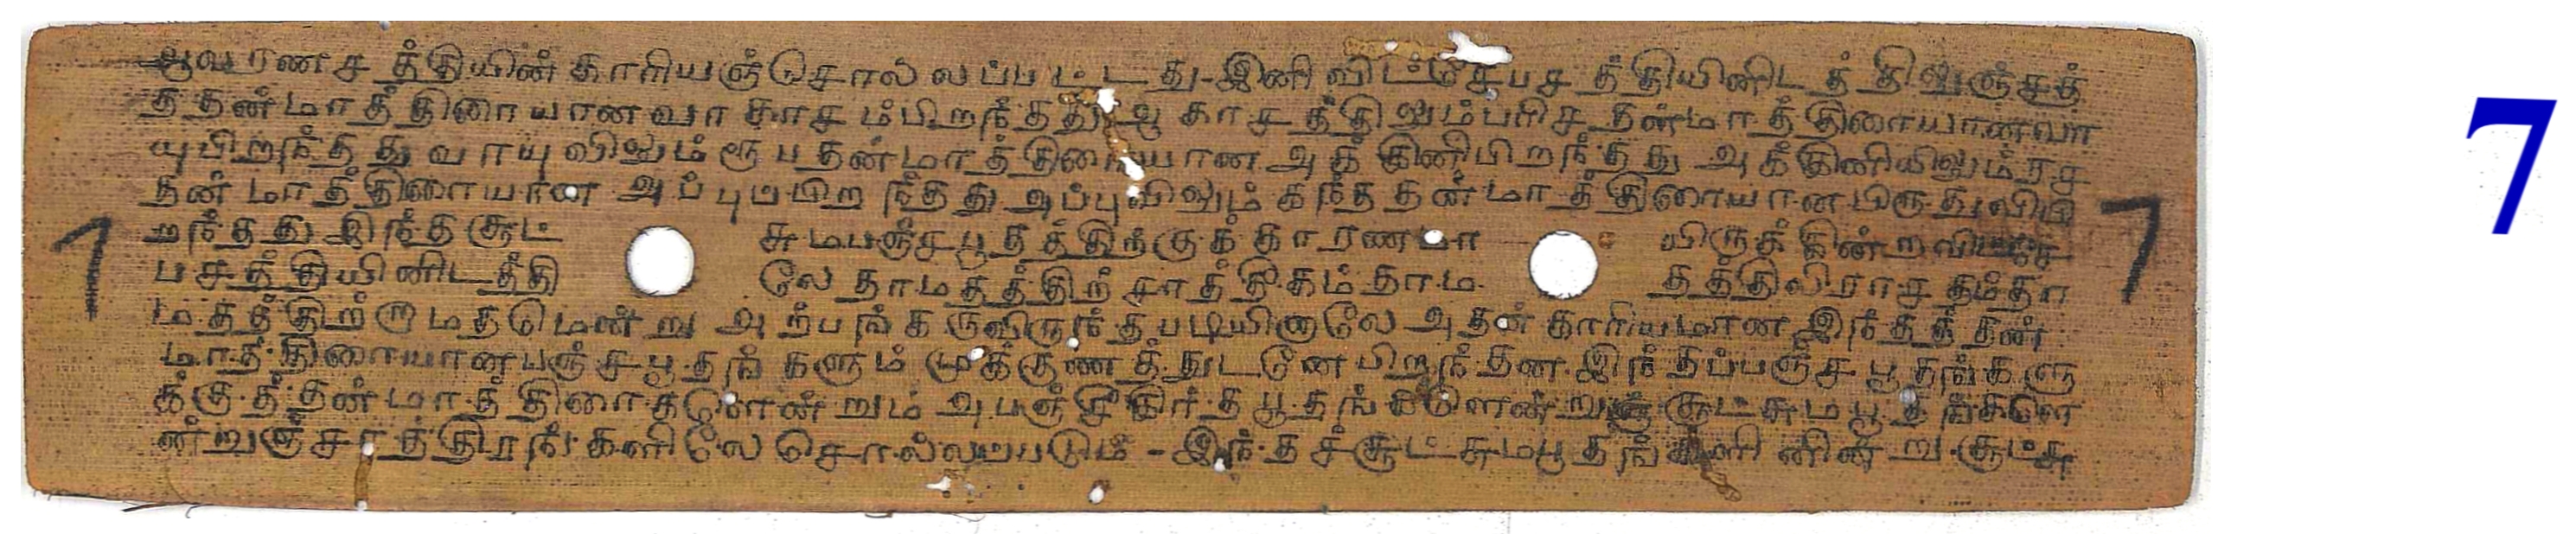 ஆவரணசத்தியின் காரியஞ்சொல்லப்பட்டது-இனி விட்சேபசத்தியினிடத்திலுஞ்சத்
த தன்மாத்திரையானவாகாசம்பிறந்தது ஆகாசத்திலும்பரிச தன்மாத்திரையானவா
யுபிறந்தது வாயுவிலும்ரூபதன்மாத்திரையான அக்கினிபிறந்தது அக்கினியிலும்ரச
தன்மாத்திரையான அப்புப்பிறந்தது அப்புவிலும் கந்ததன்மாத்திரையானபிருதுவிபி
றந்தது இந்த சூட்சுமபஞ்சபூதத்திற்குக் காரணமாயிருக்கின்றவிட்சே
பசத்தியினிடத்திலே தாமதத்திற் சாத்திகம் தாமதத்திலிராசதம்தா
மதத்திற்றாமதமென்று அற்பங்கருவிருந்தபடியினாலே அதன் காரியமான இந்தத்தன்
மாத்திரையானபஞ்சபூதங்களும் முக்குணத்துடனே பிறந்தன இந்தப்பஞ்சபூதங்களு
க்குத் தன்மாத்திரைகளென்றும் அபஞ்சீகிர்தபூதங்களென்றுஞ் சூட்சுமபூதங்களெ
ன்றுஞ்சாத்திரங்களிலே சொல்லற்படும் - இந்தச்சூட்சுமபூதங்களினின்று சூட்சு
7
7
7